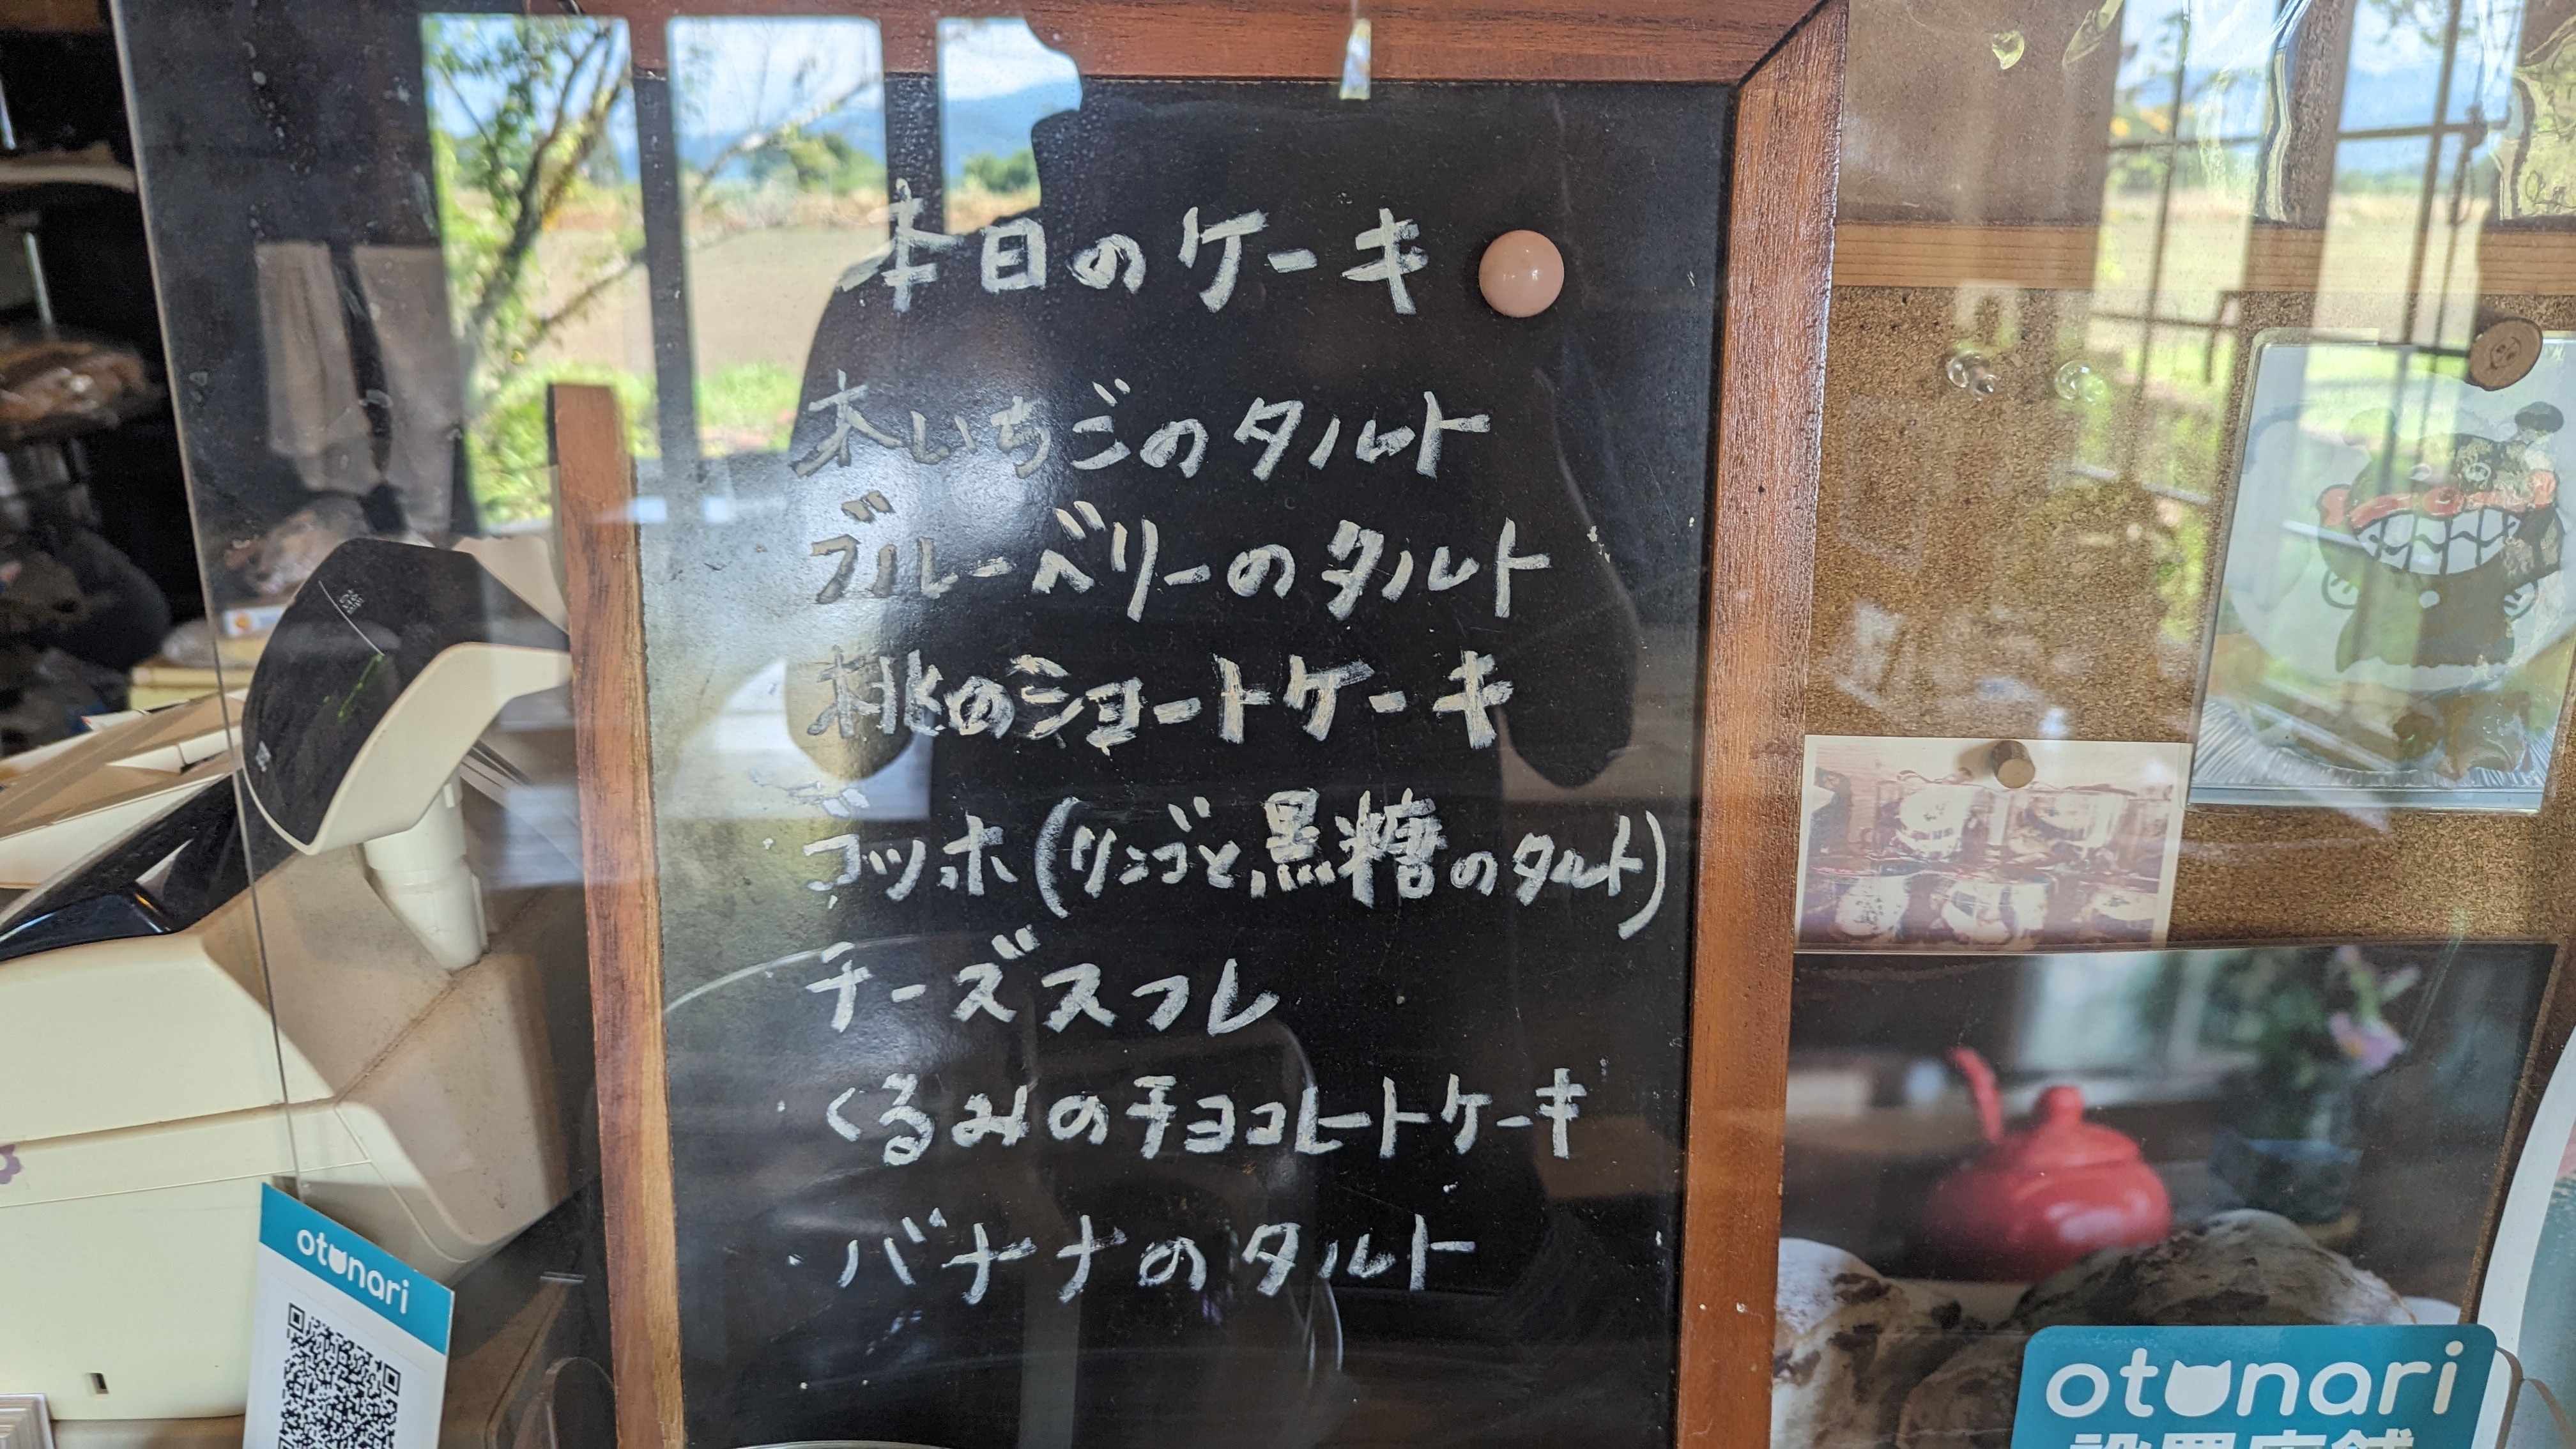 本日のケーキ
木いちごのタルト
ブルーベリーのタルト
桃のショートケーキ
ゴッホ(リンゴと黒糖のタルト)
チーズスフレ
くるみのチョコレートケーキ
バナナのタルト
otonari
otonari
設置店舗